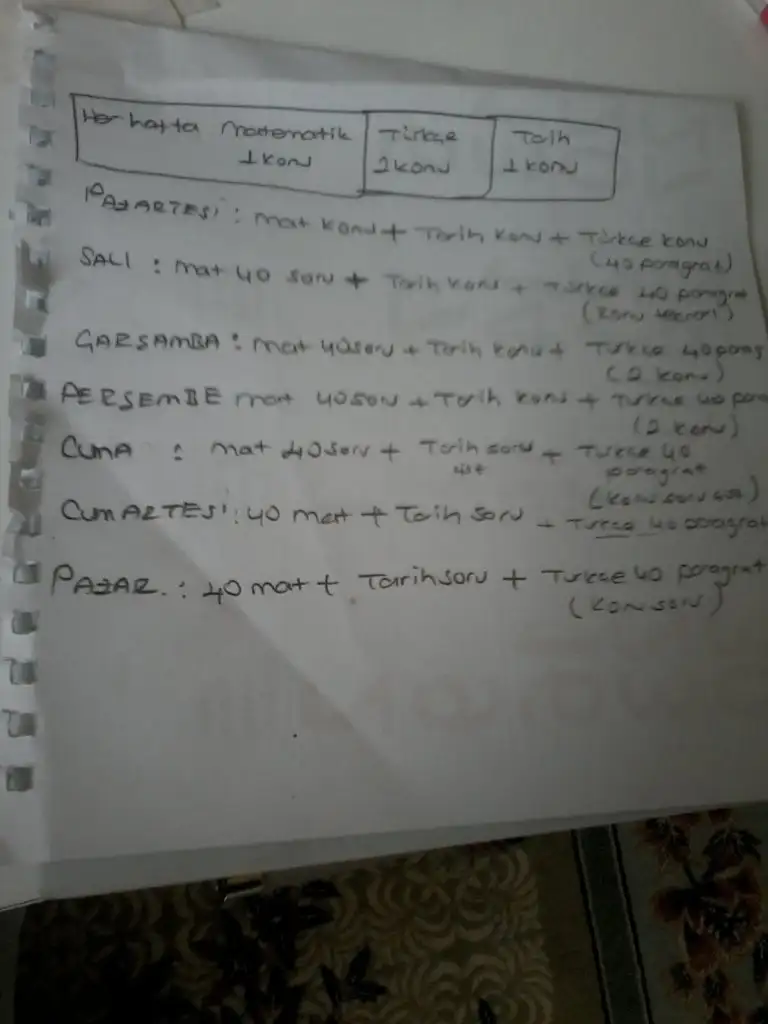 Her hafta Matematik Türkçe Tarih
1 konu 2 konu 1 konu
PAZARTESİ : Mat konu + Tarih konu + Türkçe konu
(40 paragraf)
SALI : Mat 40 soru + Tarih konu + Türkçe 40 paragraf
(konu tekrarı)
ÇARŞAMBA : Mat 40 soru + Tarih konu + Türkçe 40 parag
(2 konu)
PERSEMBE mat 40 soru + Tarih konu + Turkce 40 para
(2 konu)
CUMA : mat 40 soru + Tarih soru + Turkce 40
paragraf
(konu soru
CUMARTESİ : 40 mat + Tarih soru + Turkce 40 paragraf
PAZAR. : 40 mat + Tarih soru + Turkce 40 paragraf
(konu soru)